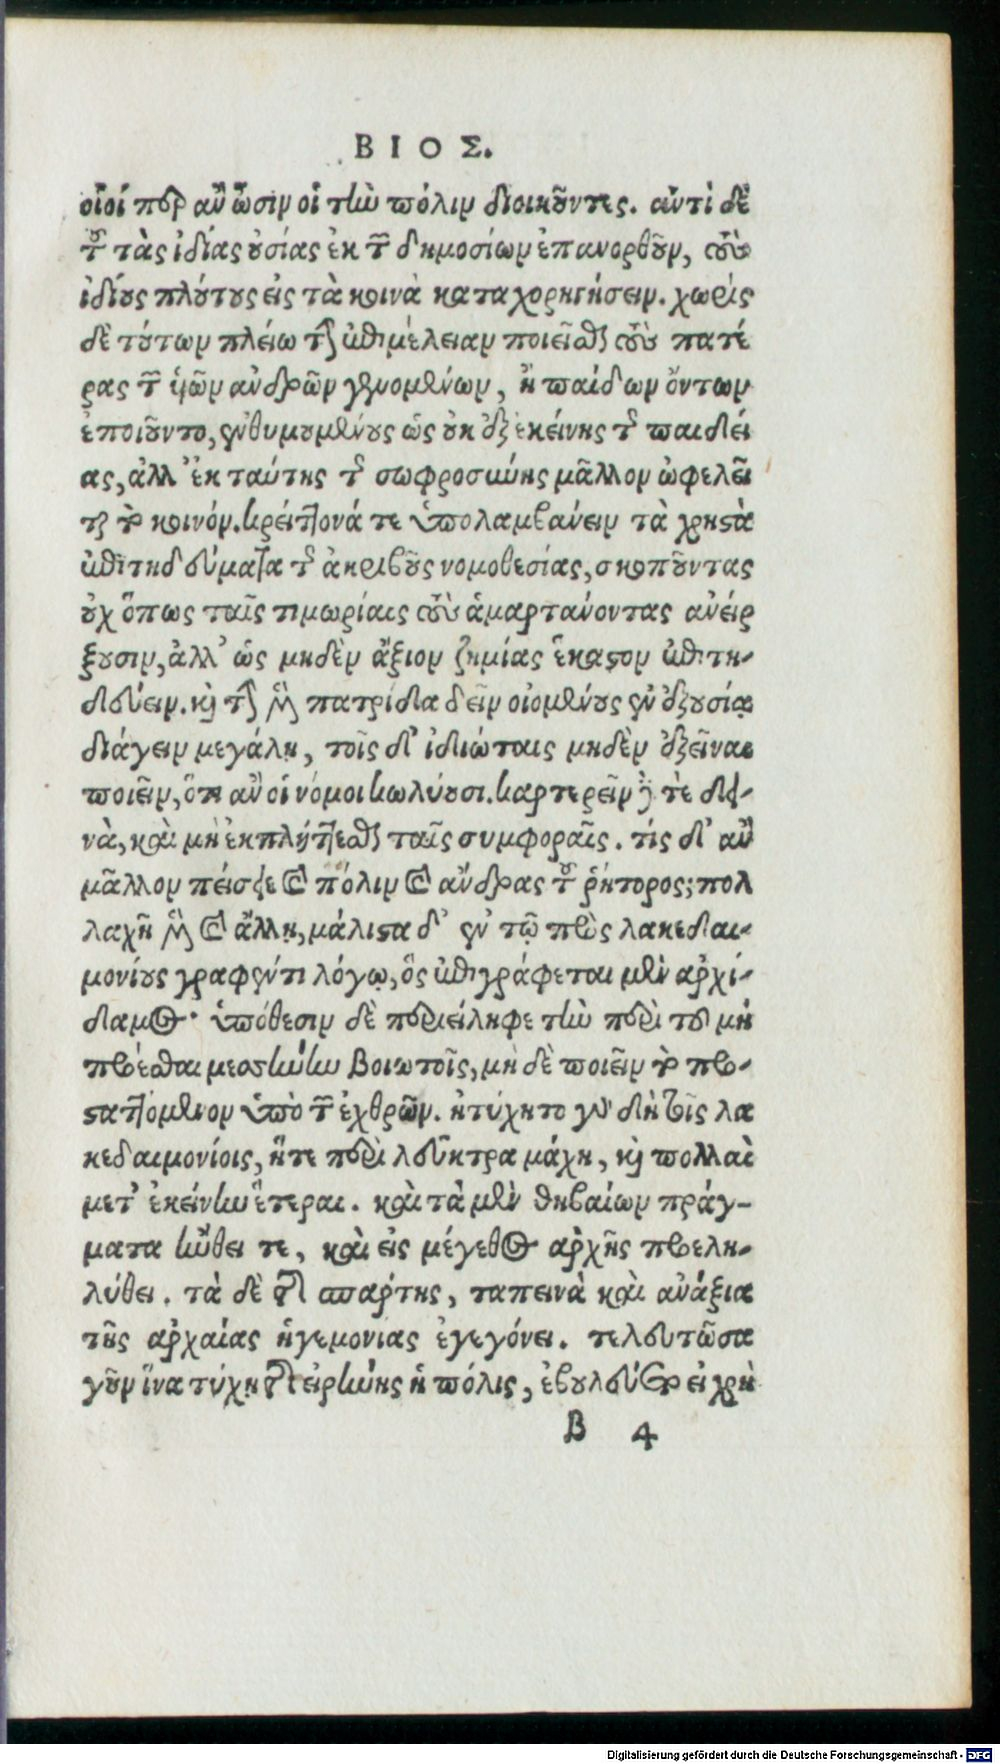 ΒΙΟΣ.
οἷοί περ ἂν ὦσιν οἱ τὴν πόλιν διοικοῦντες. ἀντὶ δὲ
τοῦ τὰς ἰδίας οὐσίας ἐκ τῶν δημοσίων ἐπανορθοῦν, τοὺς
ἰδίους πλούτους εἰς τὰ κοινὰ καταχορηγήσειν. χωρὶς
δὲ τούτων πλείω τὴν ἐπιμέλειαν ποιεῖσθαι τοὺς πατέ
ρας τῶν υἱῶν ἀνδρῶν γενομένων, ἢ παίδων ὄντων
ἐποιοῦντο, ἐνθυμουμένους ὡς οὐκ ἐξ ἐκείνης τῆς παιδεί
ας, ἀλλ' ἐκ ταύτης τῆς σωφροσύνης μᾶλλον ὠφελεῖ
ται τὸ κοινόν. κρείττονά τε ὑπολαμβάνειν τὰ χρηστὰ
ἐπιτηδεύματα τῆς ἀκριβοῦς νομοθεσίας, σκοποῦντας
οὐχ ὅπως ταῖς τιμωρίαις τοὺς ἁμαρτάνοντας ἀνείρ
ξουσιν, ἀλλ' ὡς μηδὲν ἄξιον ζημίας ἕκαστον ἐπιτη-
δεύειν. καὶ τὴν μὲν πατρίδα δεῖν οἰομένους ἐν ἐξουσίᾳ
διάγειν μεγάλῃ, τοῖς δ' ἰδιώταις μηδὲν ἐξεῖναι
ποιεῖν, ὅτι ἂν οἱ νόμοι κωλύουσι. καρτερεῖν δὲ τὰ δει-
νὰ, καὶ μὴ ἐκπλήττεσθαι ταῖς συμφοραῖς. τίς δ' ἂν
μᾶλλον πείσειε καὶ πόλιν καὶ ἄνδρας τοῦ ῥήτορος; πολ
λαχῆ μὲν καὶ ἄλλῃ, μάλιστα δ' ἐν τῷ πρὸς λακεδαι-
μονίους γραφέντι λόγῳ, ὃς ἐπιγράφεται μὲν ἀρχί-
δαμος. ὑπόθεσιν δὲ περιείληφε τὴν περὶ τοῦ μὴ
προέσθαι μεσσήνην βοιωτοῖς, μὴ δὲ ποιεῖν τὸ προ-
σταττόμενον ὑπὸ τῶν ἐχθρῶν. ἠτύχητο γὰρ δὴ τοῖς λα
κεδαιμονίοις, ἥτε περὶ λεῦκτρα μάχη, καὶ πολλαὶ
μετ' ἐκείνην ἕτεραι. καὶ τὰ μὲν θηβαίων πράγ-
ματα ἤνθει τε, καὶ εἰς μέγεθος ἀρχῆς προελη-
λύθει. τὰ δὲ τῆς σπάρτης, ταπεινὰ καὶ ἀνάξια
τῆς ἀρχαίας ἡγεμονιας ἐγεγόνει. τελευτῶσα
γοῦν ἵνα τύχῃ τῆς εἰρήνης ἡ πόλις, ἐβουλεύετο εἰ χρὴ
Β 4
Digitalisierung gefördert durch die Deutsche Forschungsgemeinschaft - DFG